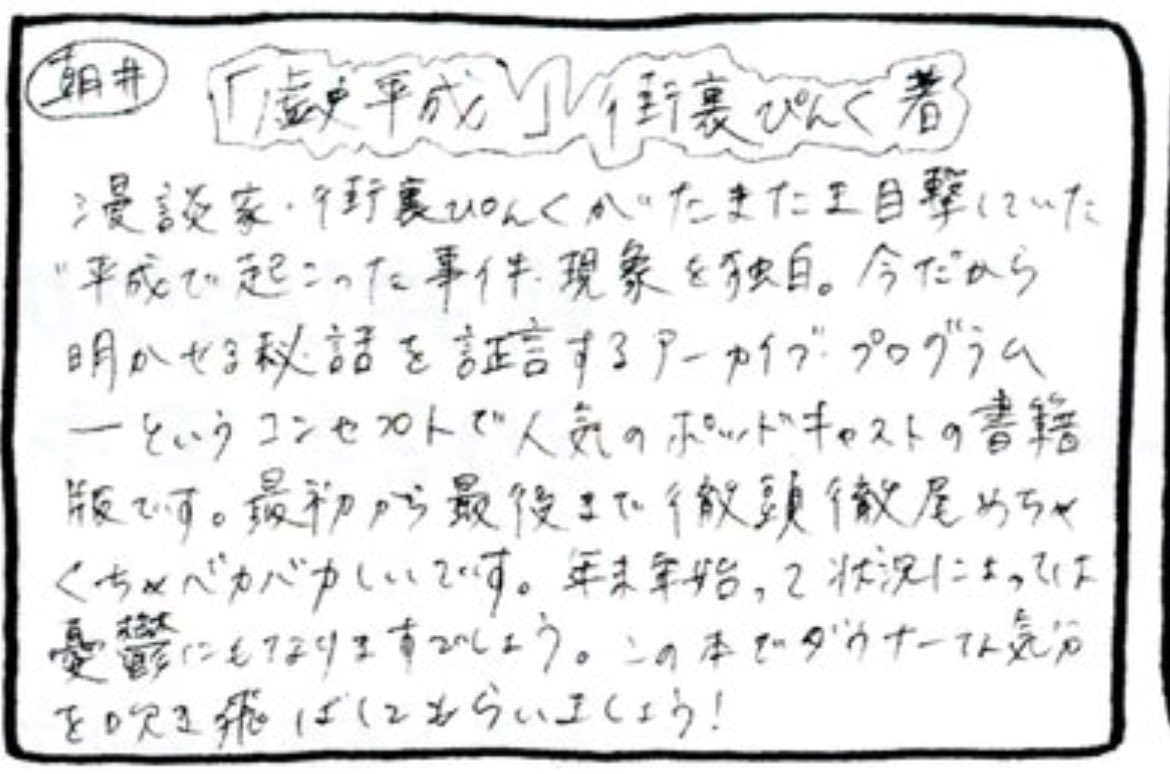 朝井
「虚史平成」街裏ぴんく著
漫談家・街裏ぴんくがたまたま目撃していた
"平成で起こった事件・現象を独白。今だから
明かせる秘話を証言するアーカイブ・プログラム
ーというコンセプトで人気のポッドキャストの書籍
版です。最初から最後まで徹頭徹尾めちゃ
くちゃバカバカしいです。年末年始って状況によっては
憂鬱にもなりますでしょう。この本でダウナーな気分
を吹き飛ばしてもらいましょう!